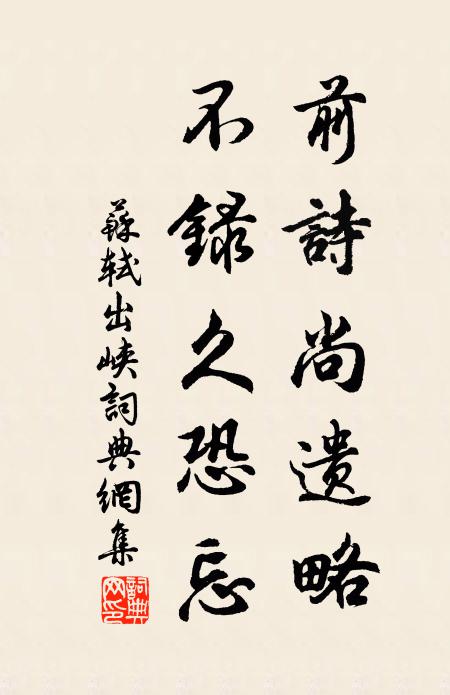 前詩尚遺略
不録久恐忘
蘇軾出峽詞典網集
詞典网印